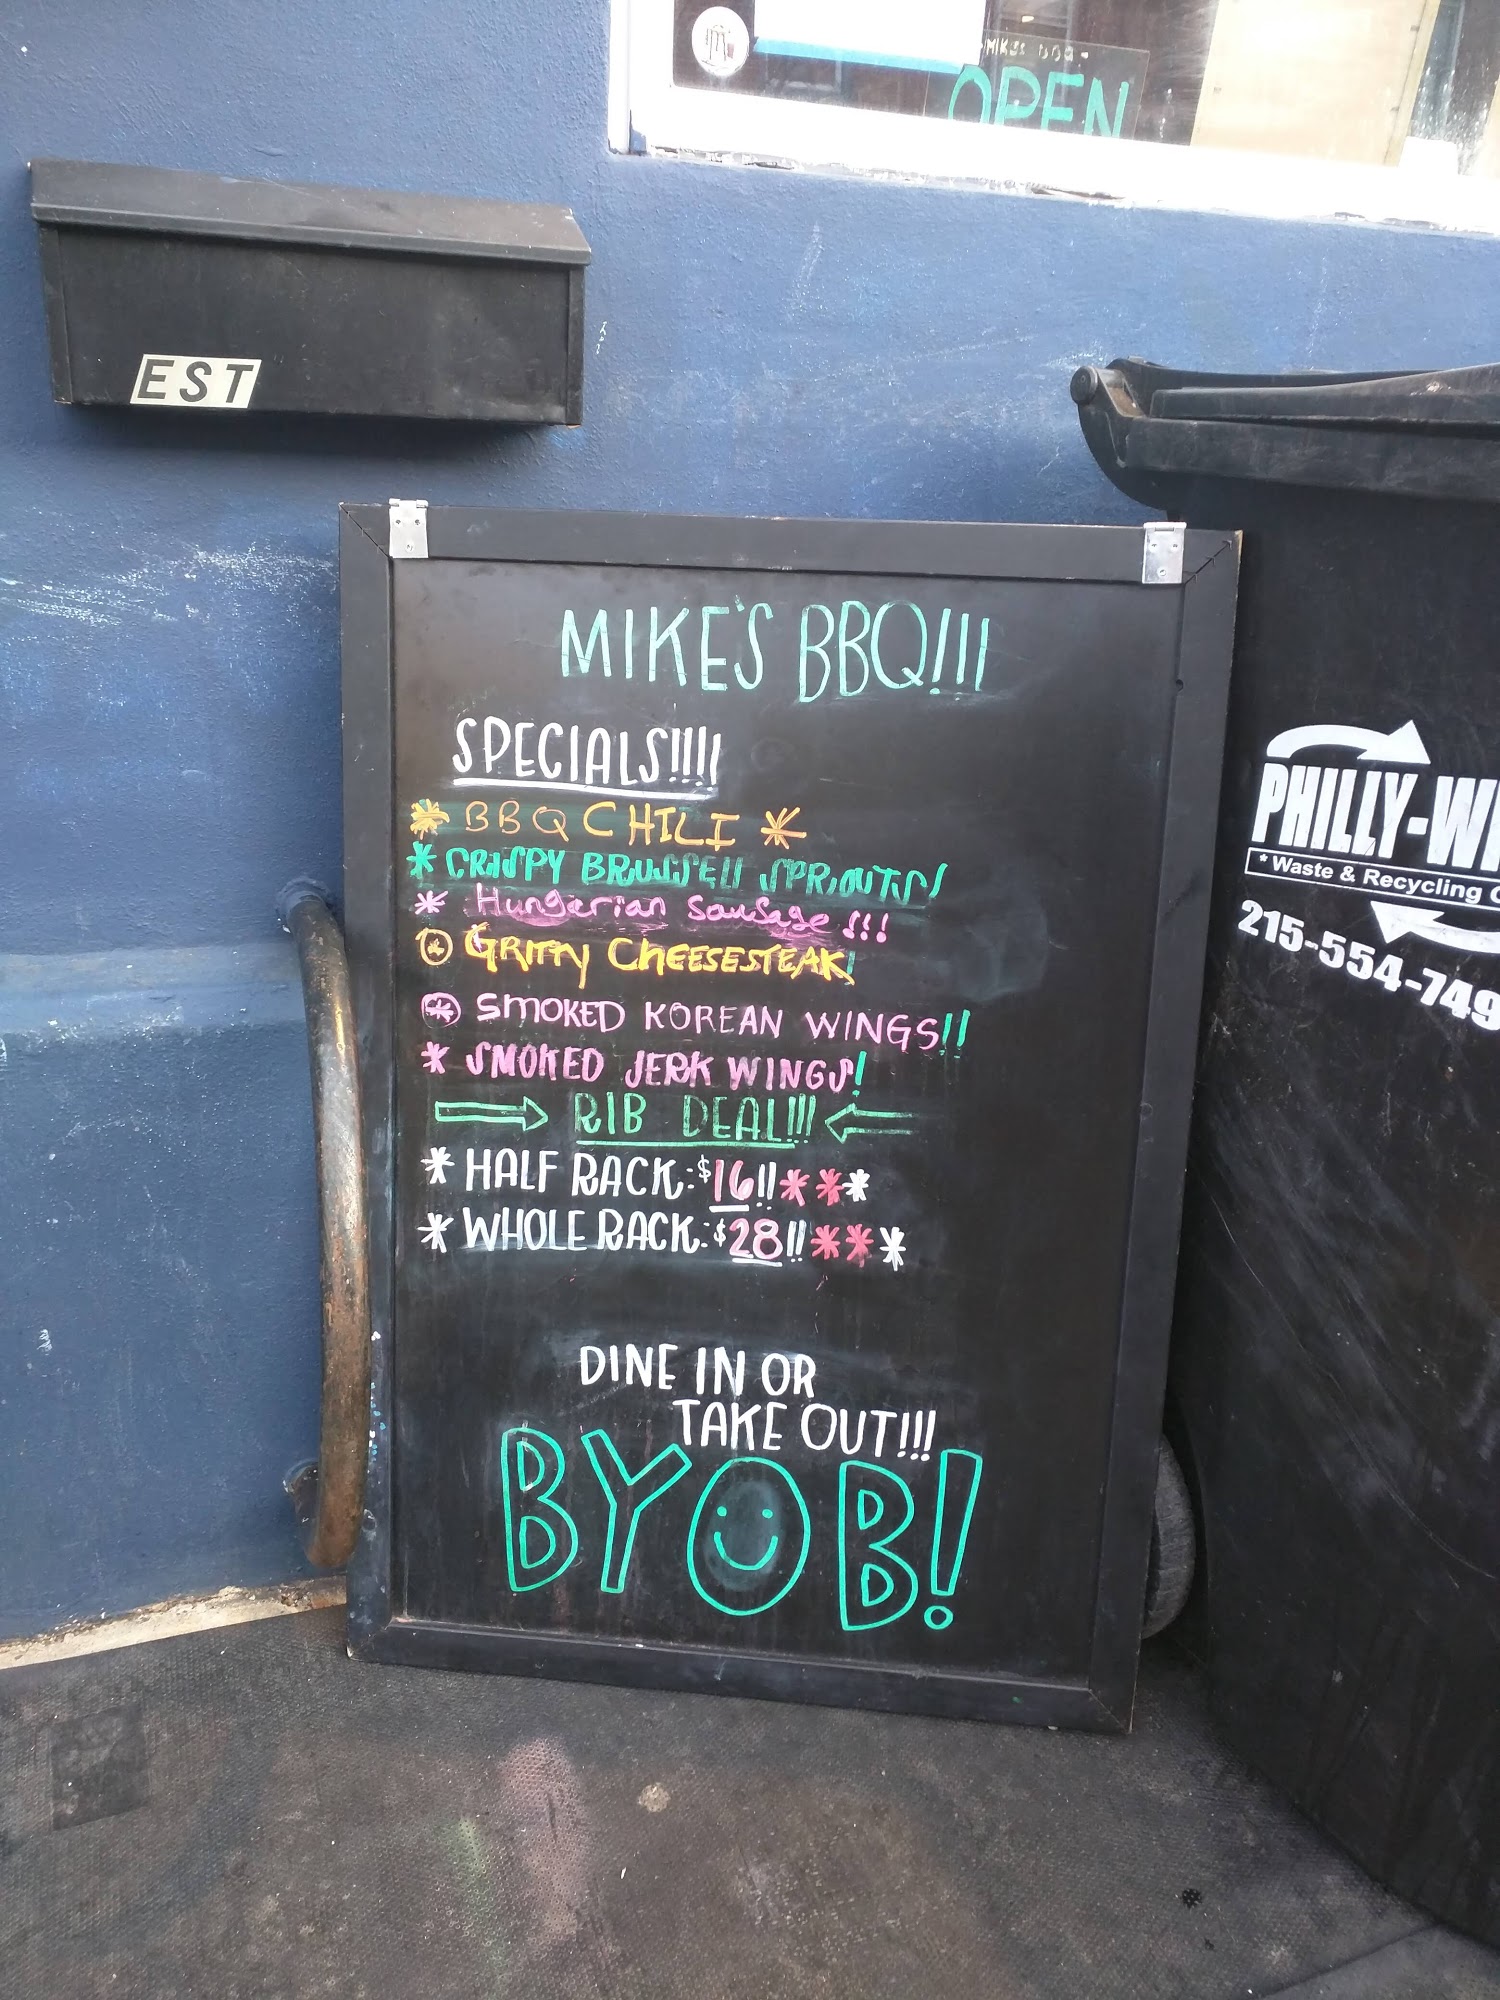 MIKES BBQ -
OPEN
EST
MIKE'S BBQ!!!
SPECIALS!!!!
* BBQ CHILI *
* CRISPY BRUSSELL SPROUTS!
* Hungarian Sausage !!!
* GRITTY CHEESESTEAK!
* SMOKED KOREAN WINGS!!
* SMOKED JERK WINGS!
RIB DEAL!!!
* HALF RACK: $16!! ***
* WHOLE RACK: $28!! ***
DINE IN OR
TAKE OUT!!!
BYOB!
PHILLY-W
* Waste & Recycling
215-554-749